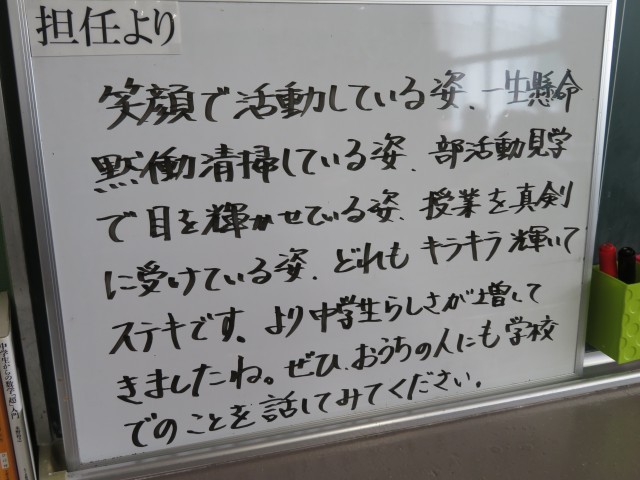 担任より
笑顔で活動している姿、一生懸命
黙働清掃している姿、部活動見学
で目を輝かせている姿、授業を真剣
に受けている姿、どれもキラキラ輝いて
ステキです。より中学生らしさが増して
きましたね。ぜひ、おうちの人にも学校
でのことを話してみてください。
中学生からの数学「超」入門